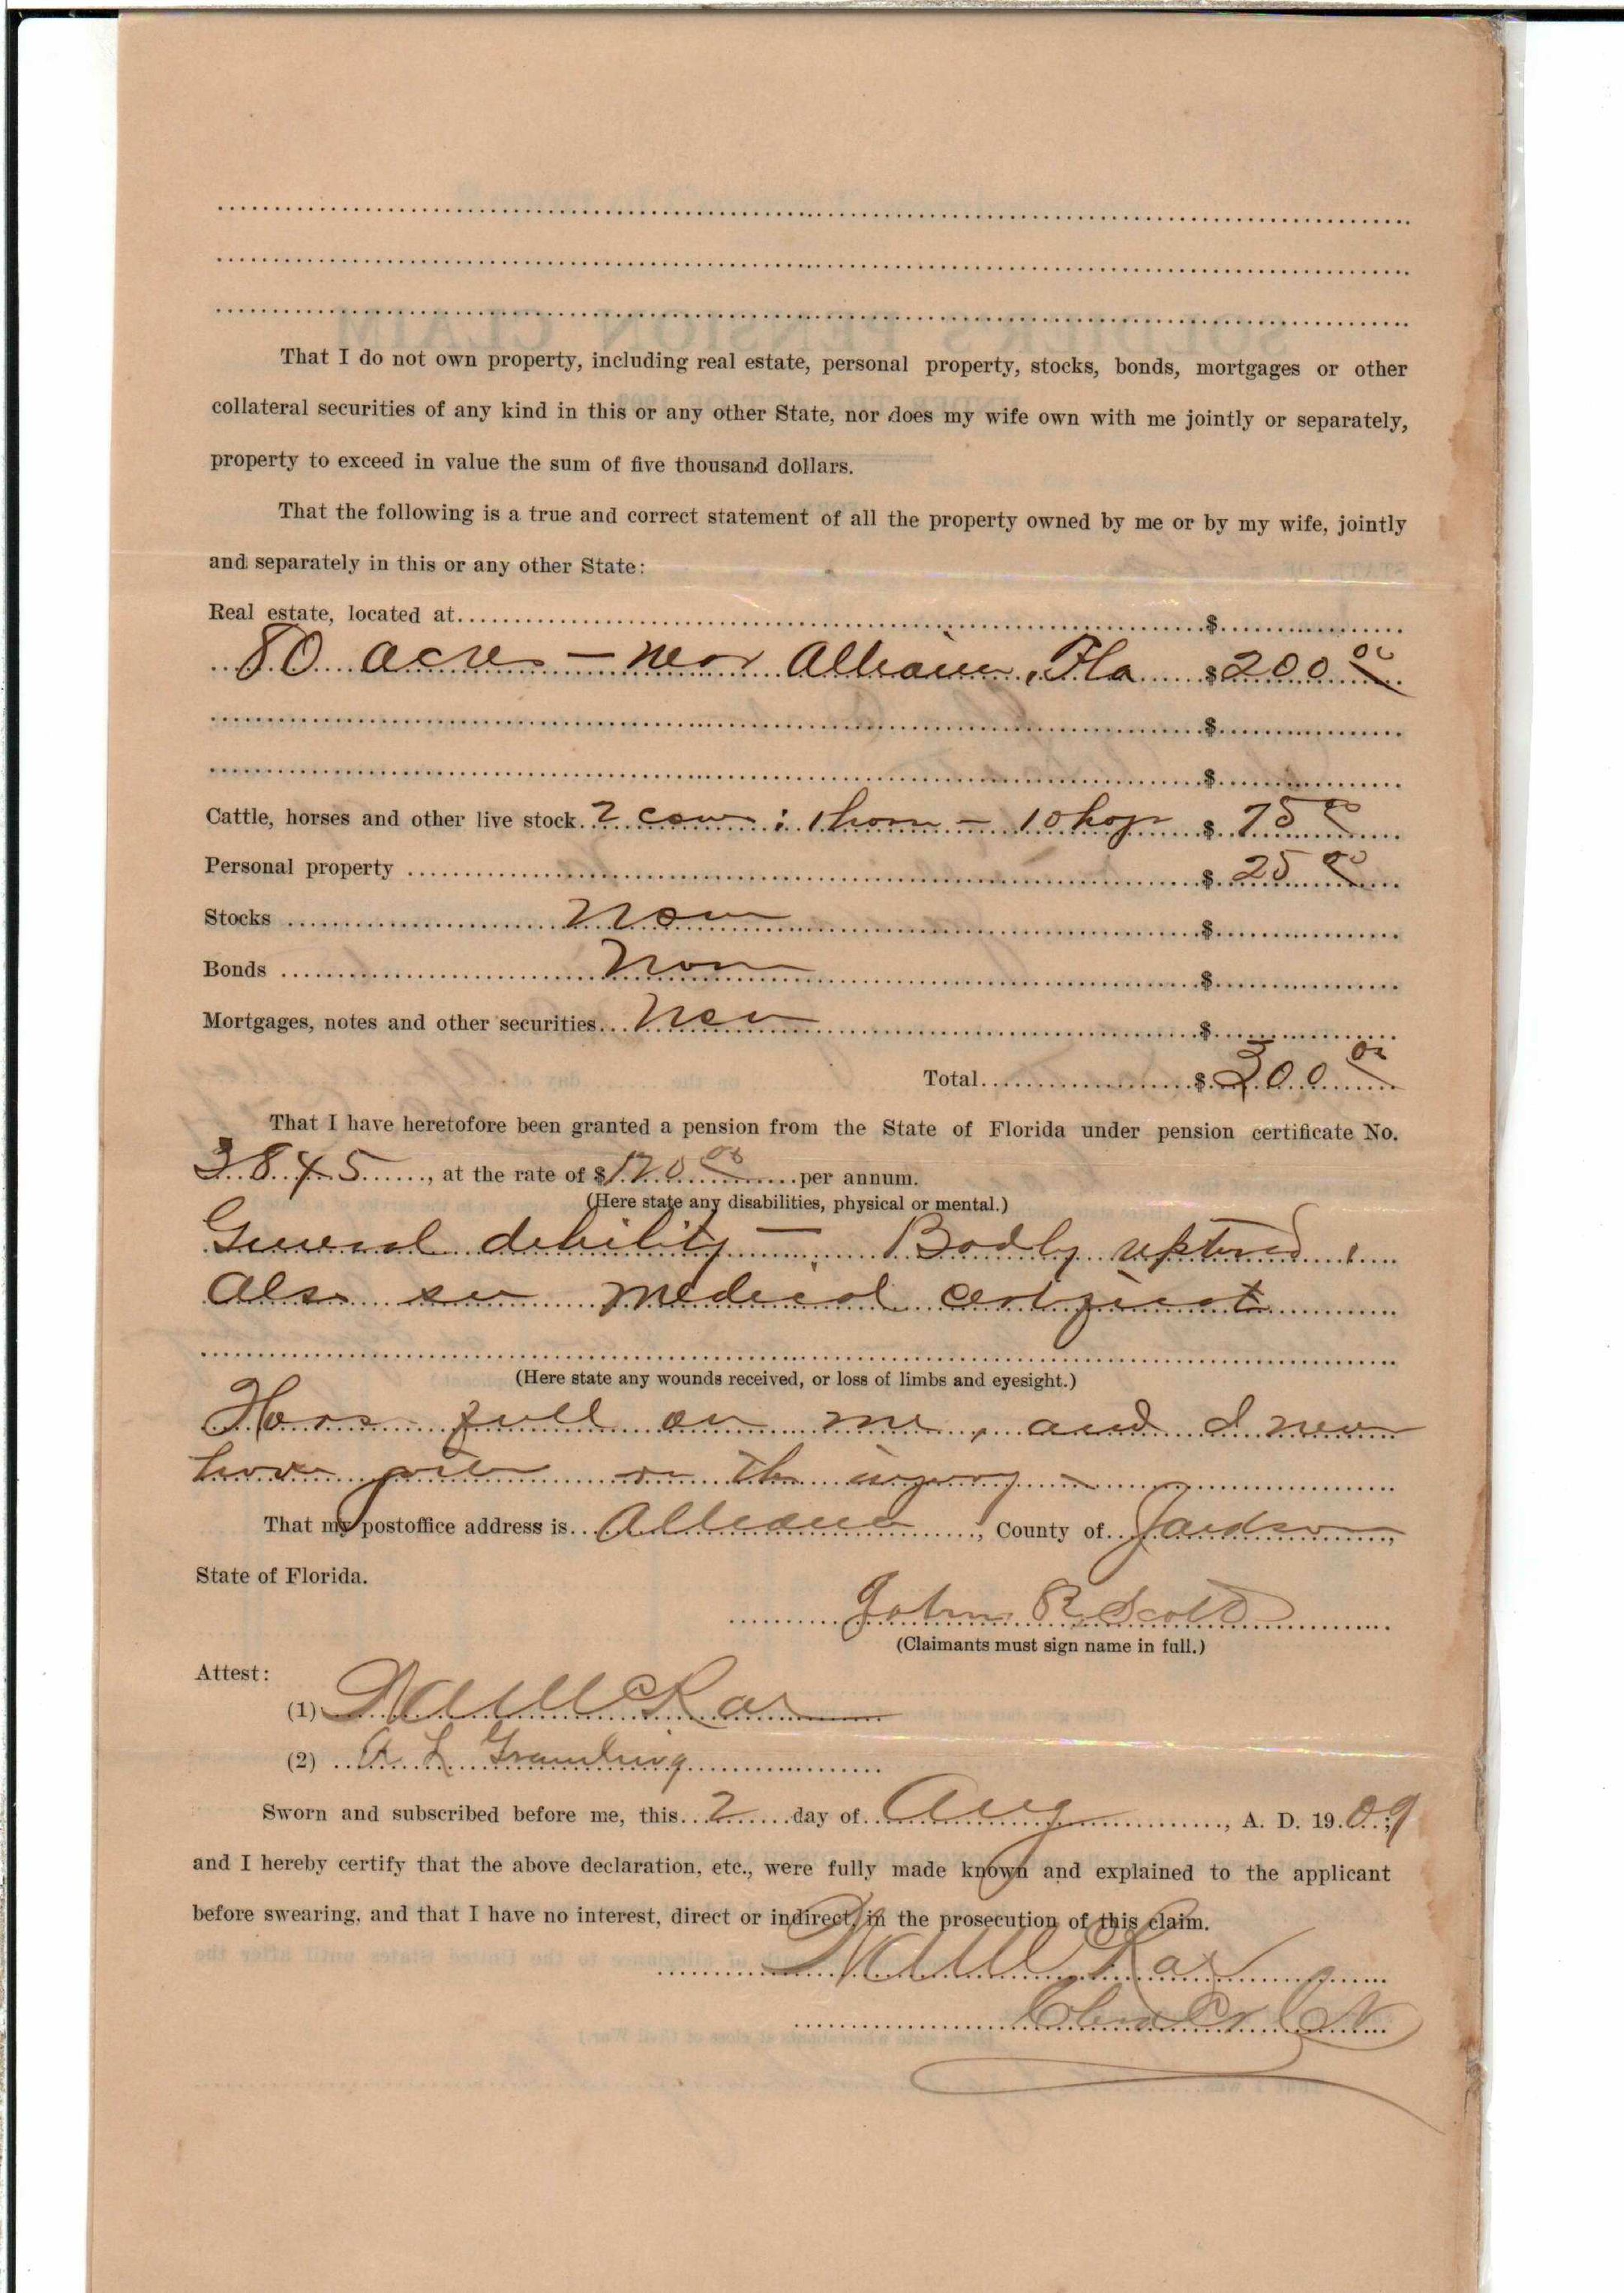 That I do not own property, including real estate, personal property, stocks, bonds, mortgages or other
collateral securities of any kind in this or any other State, nor does my wife own with me jointly or separately,
property to exceed in value the sum of five thousand dollars.
That the following is a true and correct statement of all the property owned by me or by my wife, jointly
and separately in this or any other State:
Real estate, located at $
80 acres - near Alliance, Fla $200 00
$
$
Cattle, horses and other live stock 2 cow ; 1 horse - 10 hogs $ 75 00
Personal property $ 25 00
Stocks None $
Bonds None $
Mortgages, notes and other securities None $
Total $ 300 00
That I have heretofore been granted a pension from the State of Florida under pension certificate No.
3845, at the rate of $120 00 per annum.
(Here state any disabilities, physical or mental.)
General debility - Badly ruptured,
Also see medical certificate
(Here state any wounds received, or loss of limbs and eyesight.)
Horse fell on me, and I now
have from the injury -
That my postoffice address is Alliance, County of Jackson,
State of Florida.
John R Scott
(Claimants must sign name in full.)
Attest:
(1)
(2) A. L. Grambling
Sworn and subscribed before me, this 2 day of Aug, A. D. 1909;
and I hereby certify that the above declaration, etc., were fully made known and explained to the applicant
before swearing, and that I have no interest, direct or indirect, in the prosecution of this claim.
Clerk